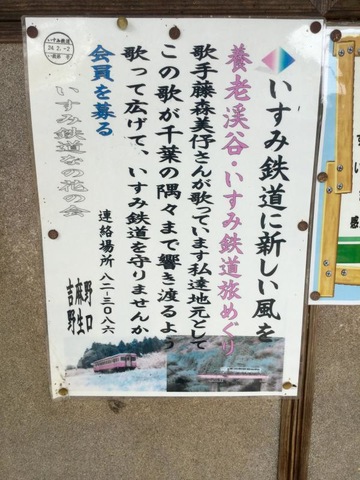 いすみ鉄道に新しい風を
養老渓谷・いすみ鉄道旅めぐり
歌手藤森美伃さんが歌っています私達地元として
この歌が千葉の隅々まで響き渡るよう
歌って広げて、いすみ鉄道を守りませんか
会員を募る
連絡場所 八二-三〇八六
いすみ鉄道なの花の会
野口
麻生
吉野
いすみ鉄道
24.2.-2